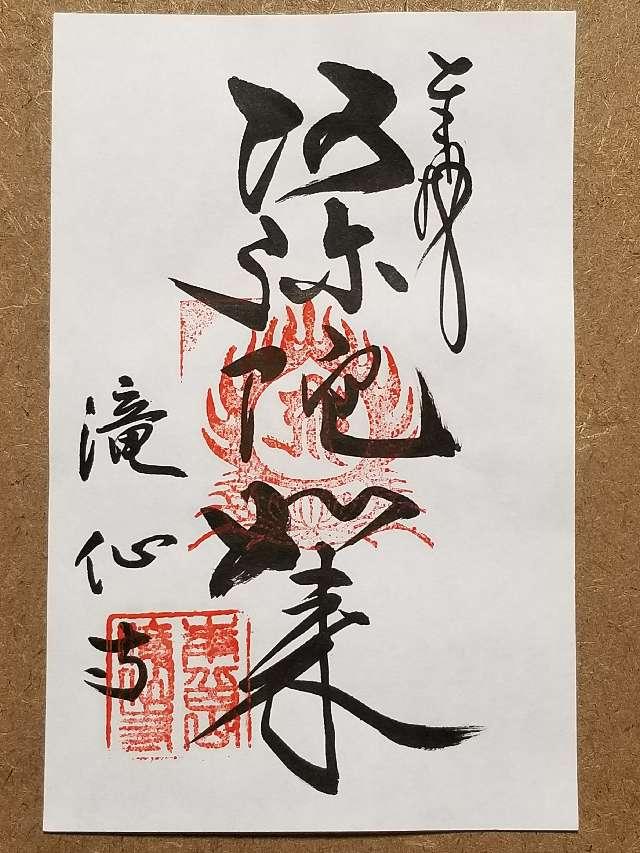 奉拝
阿弥陀如来
滝仙寺